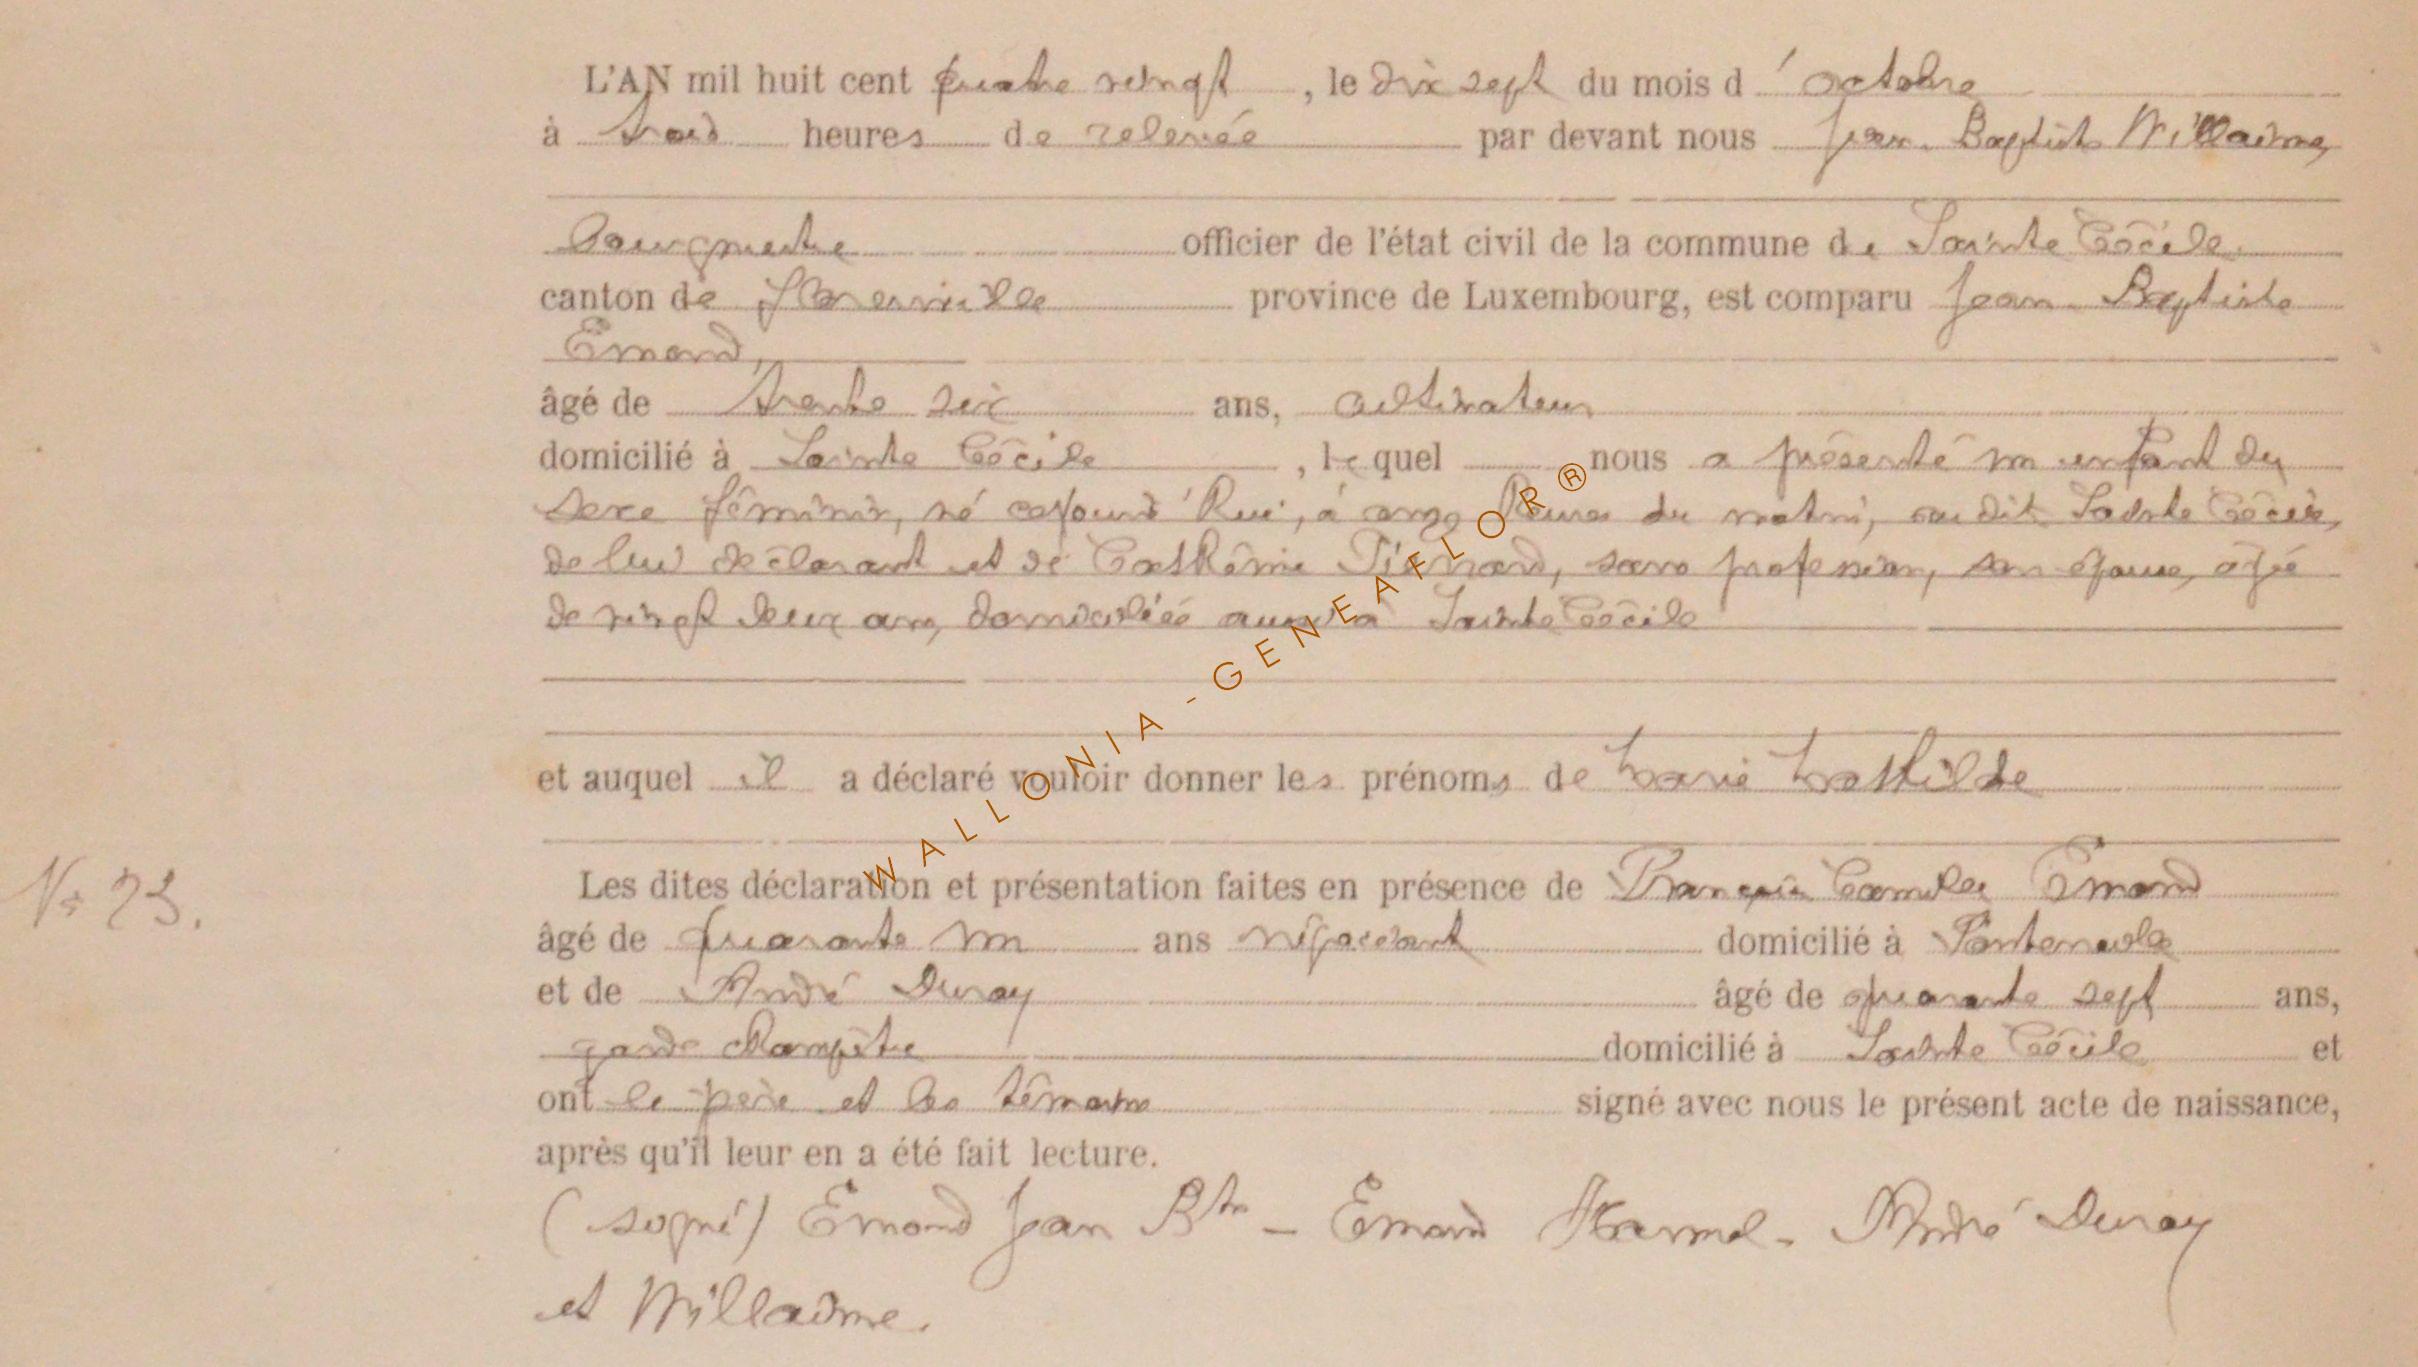 L'AN mil huit cent quatre vingt, le dix sept du mois d'octobre
à trois heures de relevée par devant nous Jean-Baptiste Willaime,
Bourgmestre officier de l'état civil de la commune de Sainte Cécile,
canton de Florenville province de Luxembourg, est comparu Jean-Baptiste
Emond,
âgé de trente six ans, cultivateur
domicilié à Sainte Cécile, lequel nous a présenté un enfant du
sexe féminin, né cejourd'hui, à onze heures du matin, au dit Sainte Cécile,
de lui déclarant et de Cathérine Pierrard, sans profession, son épouse, âgée
de vingt deux ans, domiciliée aussi à Sainte Cécile
et auquel il a déclaré vouloir donner les prénoms de Marie Mathilde
Les dites déclaration et présentation faites en présence de François Camille Emond
N° 23.
âgé de quarante un ans négociant domicilié à Fontenoille
et de André Duroy âgé de quarante sept ans,
garde champêtre domicilié à Sainte Cécile et
ont le père et les témoins signé avec nous le présent acte de naissance,
après qu'il leur en a été fait lecture.
(signé) Emond Jean Bte - Emond - André Duroy
et Willaime.
WALLONIA - GENEAFLOR®